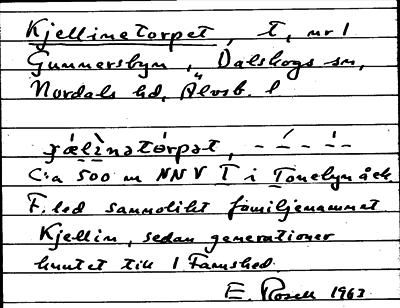 Kjellinetorpet, t, nr 1
Gunnersbyn, Dalskogs sn,
Nordals hd, Älvsb. l
C:a 500 m NNV T i Tonebyn åck
F. led sannolikt familjenamnet
Kjellin, sedan generationer
knutet till 1 Färgshed.
E. Rosell 1963